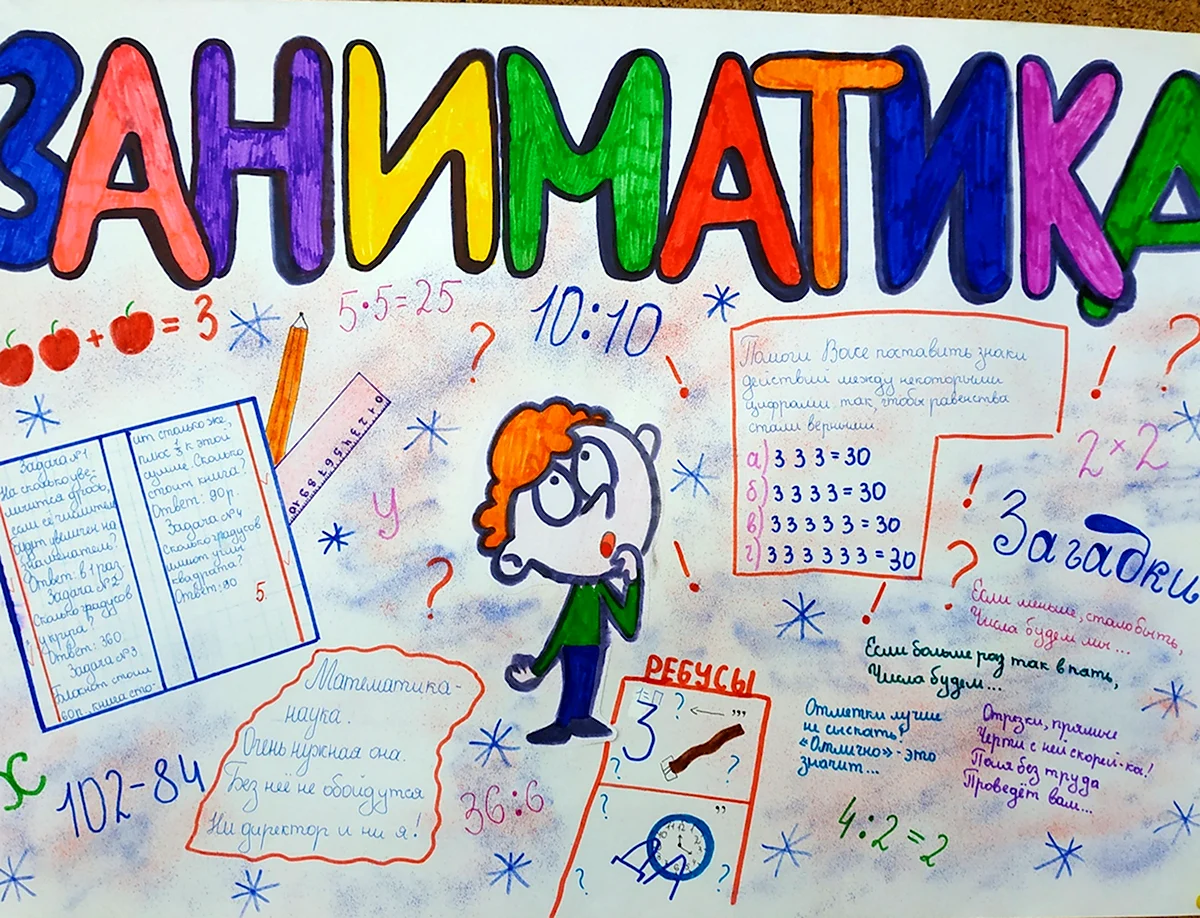 ЗАНИМАТИКА
+ = 3
5·5=25
10:10
Помоги Васе поставить знаки
действий между некоторыми
цифрами так, чтобы равенства
стали верными.
а) 3 3 3 = 30
б) 3 3 3 3 = 30
в) 3 3 3 3 3 = 30
г) 3 3 3 3 3 3 = 30
2×2
0 1 2 3 4 5 6 7 8 9 10
у
Задача №1
На сколько уве-
личится дробь,
если её числитель
будут увеличен на
знаменатель?
Ответ: в 1 раз
Задача №2
Сколько градусов
у круга?
Ответ: 360
Задача №3
Блокнот стоит
60р., книга сто-
ит столько же,
плюс к этой
сумме. Сколько
стоит книга?
Ответ: 90р.
Задача №4
Сколько градусов
имеет угол
квадрата?
Ответ: 90
5.
Загадки
Если меньше, стало быть,
Числа будем мы ...
Если больше раз так в пять,
Числа будем...
Отметки лучше
не сыскать!
«Отлично» - это
значит...
Отрезки, прямые
Черти с ней скорей-ка!
Поля без труда
Проведёт вам...
Математика-
наука.
Очень нужная она.
Без неё не обойдутся
Ни директор и ни я!
РЕБУСЫ
? ← ,,,
3
? ?
? ,,
? ?
х
102-84
36:6
4:2=2